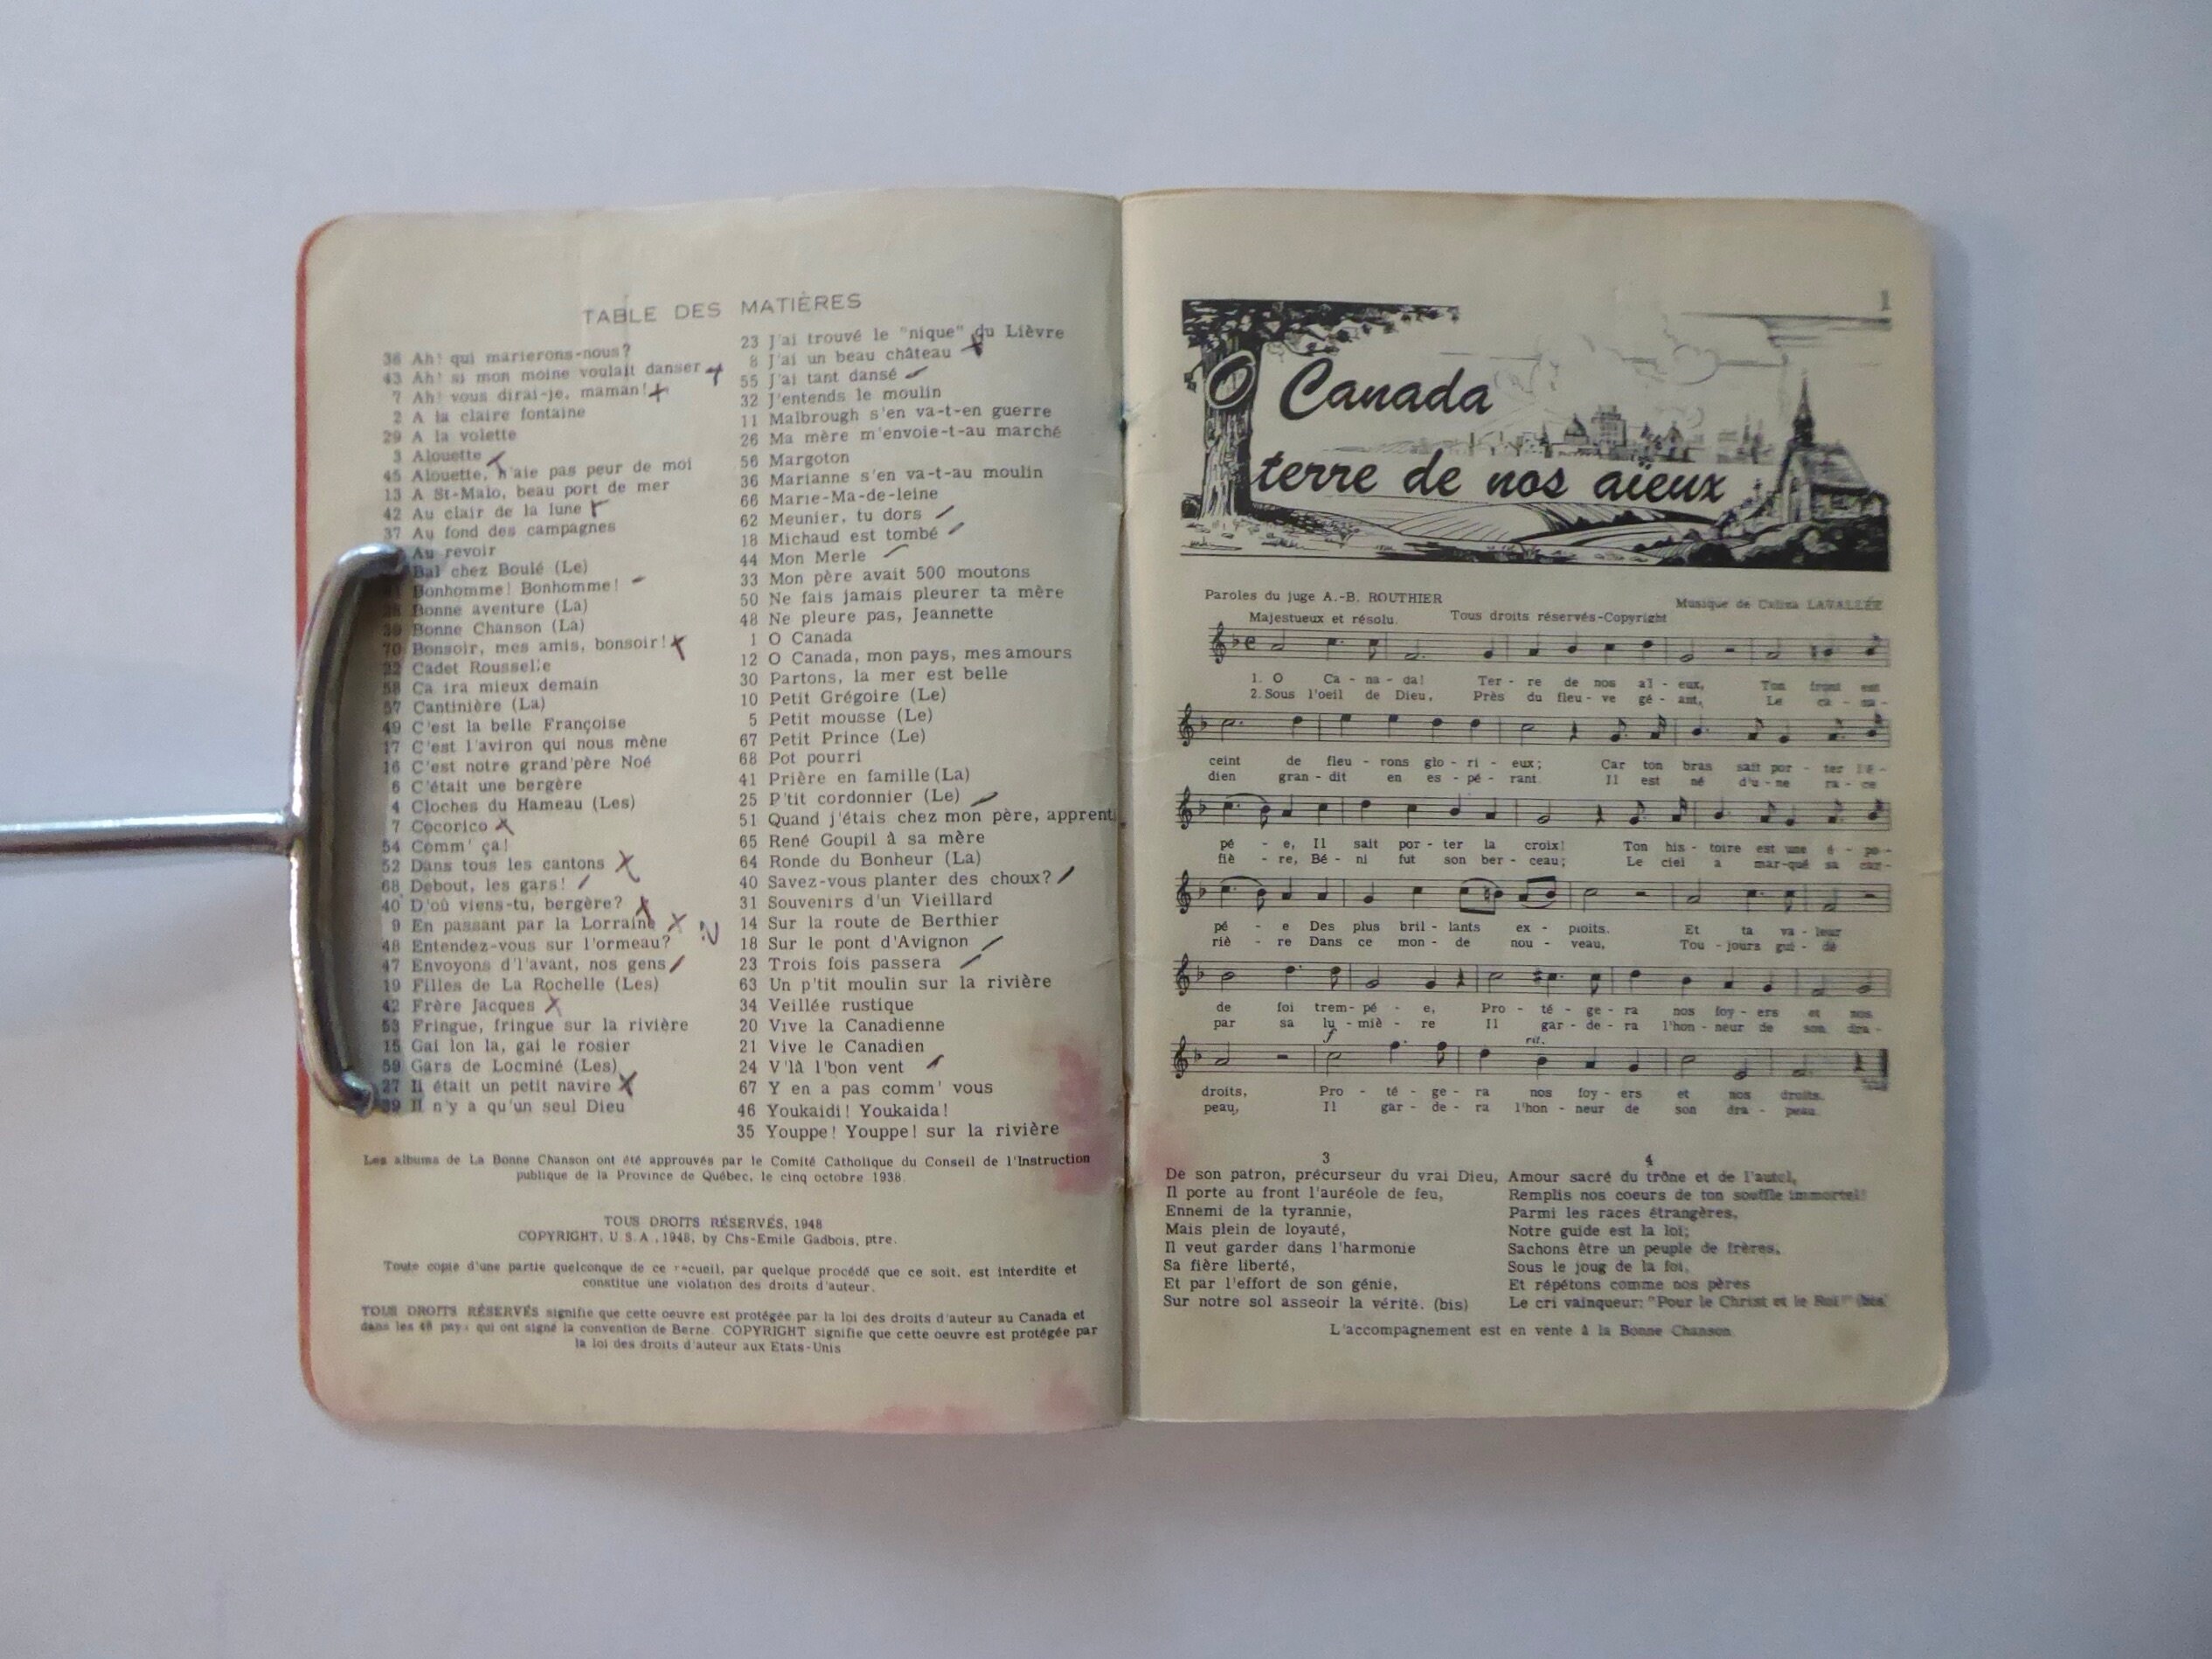 TABLE DES MATIÈRES
36 Ah! qui marierons-nous?
43 Ah! si mon moine voulait danser
7 Ah! vous dirai-je, maman!
2 A la claire fontaine
29 A la volette
3 Alouette
45 Alouette, n'aie pas peur de moi
13 A St-Malo, beau port de mer
42 Au clair de la lune
37 Au fond des campagnes
Au revoir
Bal chez Boulé (Le)
Bonhomme! Bonhomme!
Bonne aventure (La)
39 Bonne Chanson (La)
70 Bonsoir, mes amis, bonsoir!
22 Cadet Rousselle
58 Ca ira mieux demain
57 Cantinière (La)
49 C'est la belle Françoise
17 C'est l'aviron qui nous mène
16 C'est notre grand'père Noé
6 C'était une bergère
4 Cloches du Hameau (Les)
7 Cocorico
54 Comm' ça!
52 Dans tous les cantons
68 Debout, les gars!
40 D'où viens-tu, bergère?
9 En passant par la Lorraine
48 Entendez-vous sur l'ormeau?
47 Envoyons d'l'avant, nos gens
19 Filles de La Rochelle (Les)
42 Frère Jacques
53 Fringue, fringue sur la rivière
15 Gai lon la, gai le rosier
59 Gars de Locminé (Les)
27 Il était un petit navire
39 Il n'y a qu'un seul Dieu
23 J'ai trouvé le "nique" du Lièvre
8 J'ai un beau château
55 J'ai tant dansé
32 J'entends le moulin
11 Malbrough s'en va-t-en guerre
26 Ma mère m'envoie-t-au marché
56 Margoton
36 Marianne s'en va-t-au moulin
66 Marie-Ma-de-leine
62 Meunier, tu dors
18 Michaud est tombé
44 Mon Merle
33 Mon père avait 500 moutons
50 Ne fais jamais pleurer ta mère
48 Ne pleure pas, Jeannette
1 O Canada
12 O Canada, mon pays, mes amours
30 Partons, la mer est belle
10 Petit Grégoire (Le)
5 Petit mousse (Le)
67 Petit Prince (Le)
68 Pot pourri
41 Prière en famille (La)
25 P'tit cordonnier (Le)
51 Quand j'étais chez mon père, apprenti
65 René Goupil à sa mère
64 Ronde du Bonheur (La)
40 Savez-vous planter des choux?
31 Souvenirs d'un Vieillard
14 Sur la route de Berthier
18 Sur le pont d'Avignon
23 Trois fois passera
63 Un p'tit moulin sur la rivière
34 Veillée rustique
20 Vive la Canadienne
21 Vive le Canadien
24 V'là l'bon vent
67 Y en a pas comm' vous
46 Youkaidi! Youkaida!
35 Youppe! Youppe! sur la rivière
Les albums de La Bonne Chanson ont été approuvés par le Comité Catholique du Conseil de l'Instruction
publique de la Province de Québec, le cinq octobre 1938.
TOUS DROITS RÉSERVÉS, 1948
COPYRIGHT, U.S.A., 1948, by Chs-Emile Gadbois, ptre.
Toute copie d'une partie quelconque de ce recueil, par quelque procédé que ce soit, est interdite et
constitue une violation des droits d'auteur.
TOUS DROITS RÉSERVÉS signifie que cette oeuvre est protégée par la loi des droits d'auteur au Canada et
dans les 48 pays qui ont signé la convention de Berne. COPYRIGHT signifie que cette oeuvre est protégée par
la loi des droits d'auteur aux Etats-Unis
1
O Canada
terre de nos aïeux
Paroles du juge A.-B. ROUTHIER
Musique de Calixa LAVALLÉE
Majestueux et résolu. Tous droits réservés-Copyright
1. O Ca - na - da! Ter - re de nos aï - eux, Ton front est
2. Sous l'oeil de Dieu, Près du fleu - ve gé - ant, Le ca - na -
ceint de fleu - rons glo - ri - eux; Car ton bras sait por - ter l'é -
dien gran - dit en es - pé - rant. Il est né d'u - ne ra - ce
pé - e, Il sait por - ter la croix! Ton his - toire est une é - po -
fiè - re, Bé - ni fut son ber - ceau; Le ciel a mar - qué sa car -
pé - e Des plus bril - lants ex - ploits. Et ta va - leur
riè - re Dans ce mon - de nou - veau, Tou - jours gui - dé
de foi trem - pé - e, Pro - té - ge - ra nos foy - ers et nos
par sa lu - miè - re Il gar - de - ra l'hon - neur de son dra -
f rit.
droits, Pro - té - ge - ra nos foy - ers et nos droits.
peau, Il gar - de - ra l'hon - neur de son dra - peau.
3
De son patron, précurseur du vrai Dieu,
Il porte au front l'auréole de feu,
Ennemi de la tyrannie,
Mais plein de loyauté,
Il veut garder dans l'harmonie
Sa fière liberté,
Et par l'effort de son génie,
Sur notre sol asseoir la vérité. (bis)
4
Amour sacré du trône et de l'autel,
Remplis nos coeurs de ton souffle immortel!
Parmi les races étrangères,
Notre guide est la loi;
Sachons être un peuple de frères,
Sous le joug de la foi,
Et répétons comme nos pères
Le cri vainqueur: "Pour le Christ et le Roi!" (bis)
L'accompagnement est en vente à la Bonne Chanson